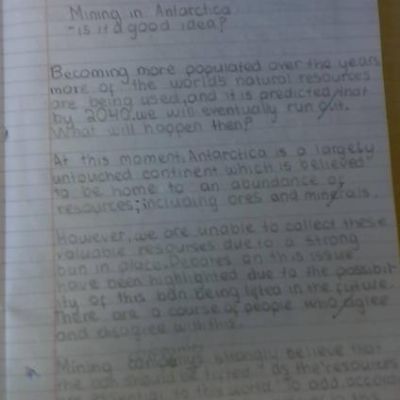 Mining in Antarctica
- is it a good idea?
Becoming more populated over the years
more of the worlds natural resources
are being used, and it is predicted that
by 2040, we will eventually run out.
What will happen then?
At this moment, Antarctica is a largely
untouched continent which is believed
to be home to an abundance of
resources; including ores and minerals.
However, we are unable to collect these
valuable resourses due to a strong
ban in place. Debates on this issue
have been highlighted due to the possibil
ity of this ban being lifted in the future.
There are a course of people who agree
and disagree with this.
Mining strongly believe that
the ban should be lifted "as the resources
are to this world. To add,